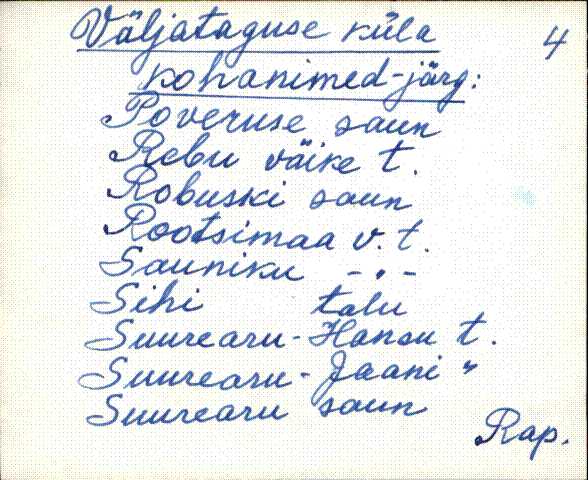 Väljataguse küla 4
kohanimed-järg:
Poveruse saun
Rebu väike t.
Robuski saun
Rootsimaa v. t.
Sauniku -"-
Sihi talu
Suurearu-Hansu t.
Suurearu-Jaani "
Suurearu saun
Rap.